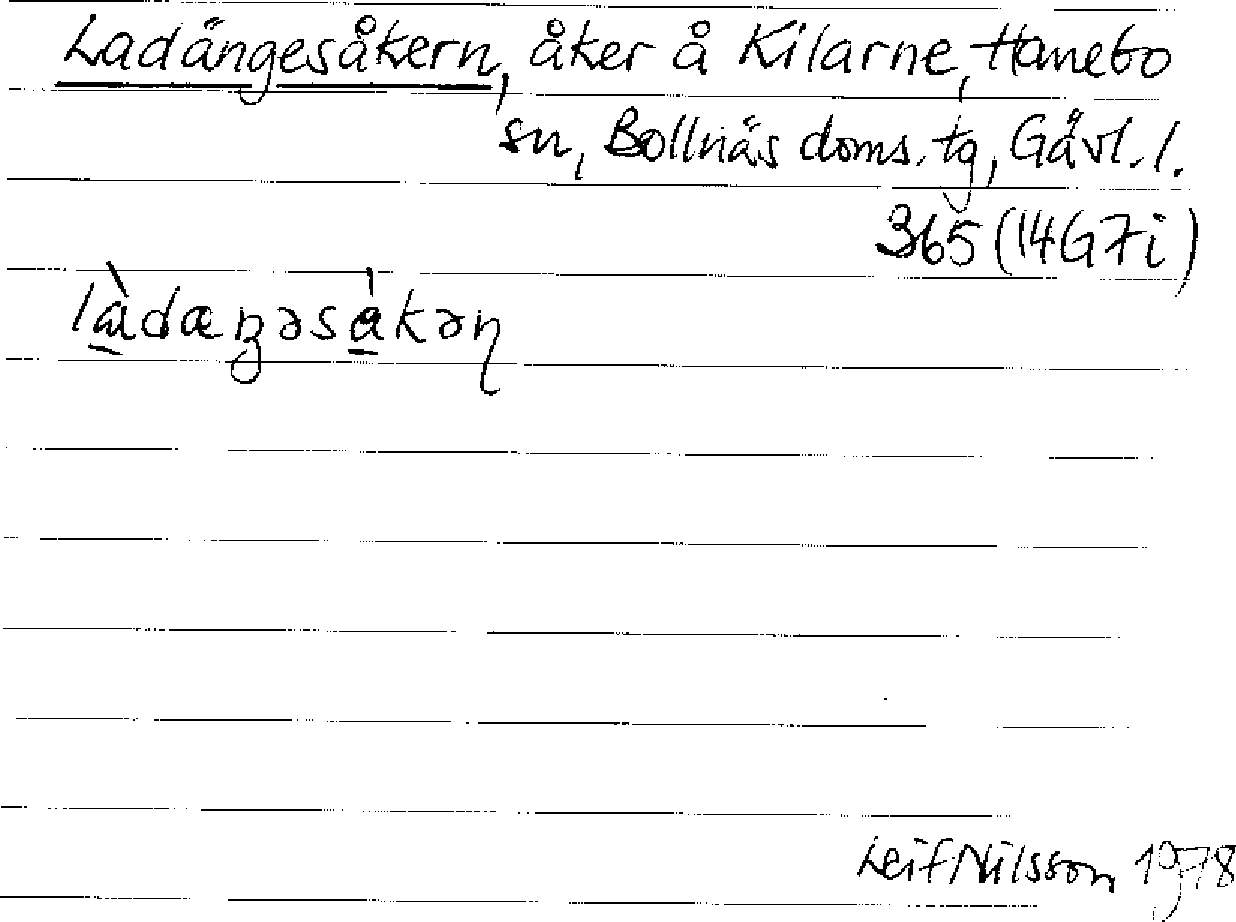 Ladängesåkern, åker å Kilarne, Hanebo
sn, Bollnäs doms. tg, Gävl. l.
365 (14G7i)
Leif Nilsson 1978